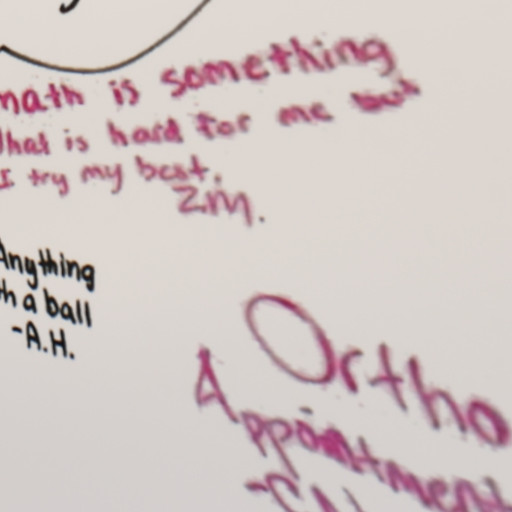 math is something
that is hard for me but
I try my best.
ZM.
Anything
th a ball
-A.H.
Ortho
Appointment